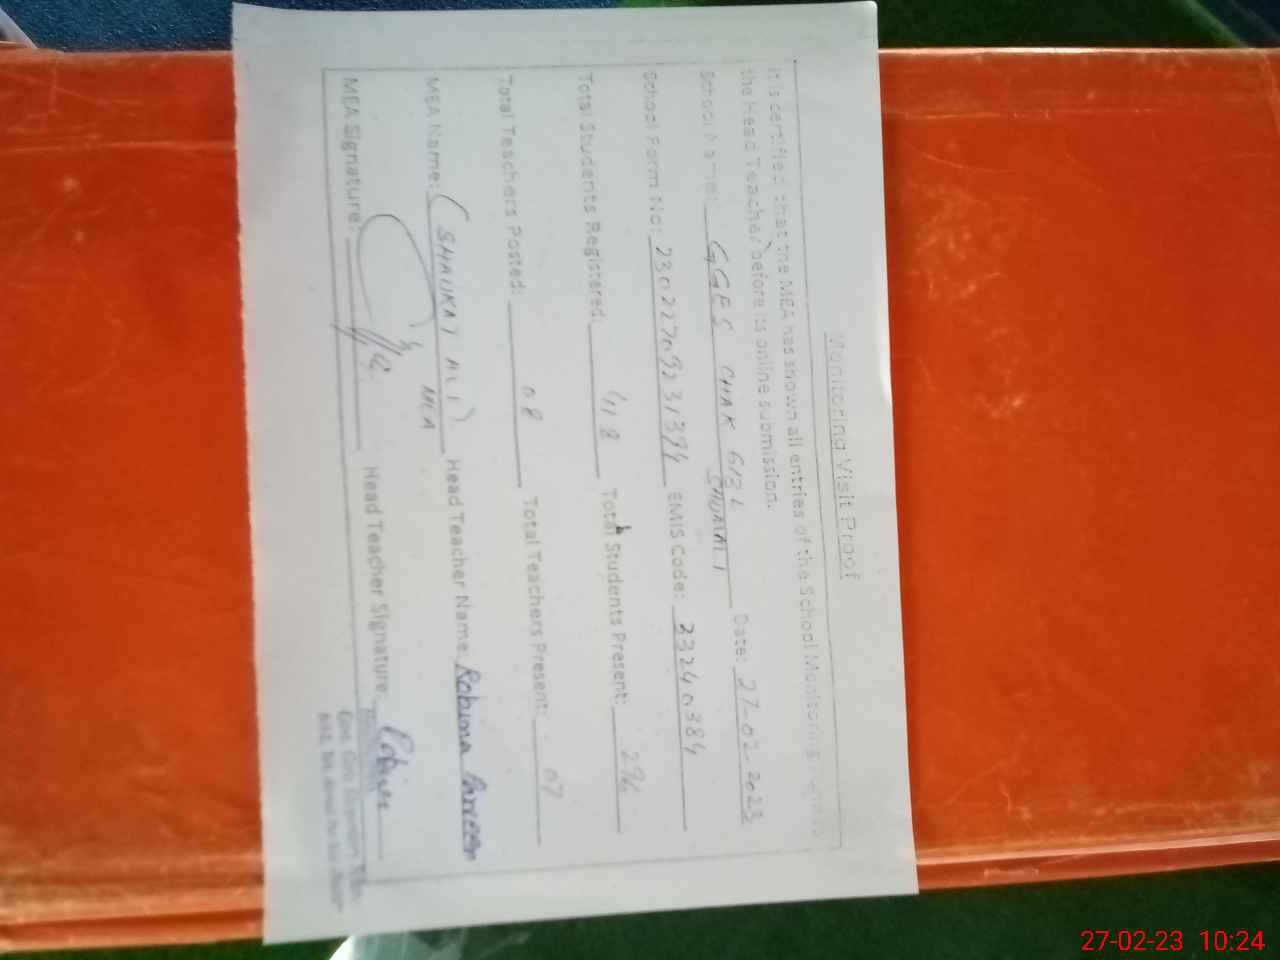 Monitoring Visit Proof
It is certified that the MEA has shown all entries of the School Monitoring
the Head Teacher before its online submission.
School Name: GGES CHAK 612 L SHUMALI Date: 27-02-2023
School Form No: 23022709231394 EMIS Code: 33240384
Total Students Registered: 418 Total Students Present: 296
Total Teachers Posted: 08 Total Teachers Present: 07
MEA Name: (SHAUKAT ALI) MEA Head Teacher Name: Robina Parveen
MEA Signature: Head Teacher Signature: Robina
27-02-23 10:24